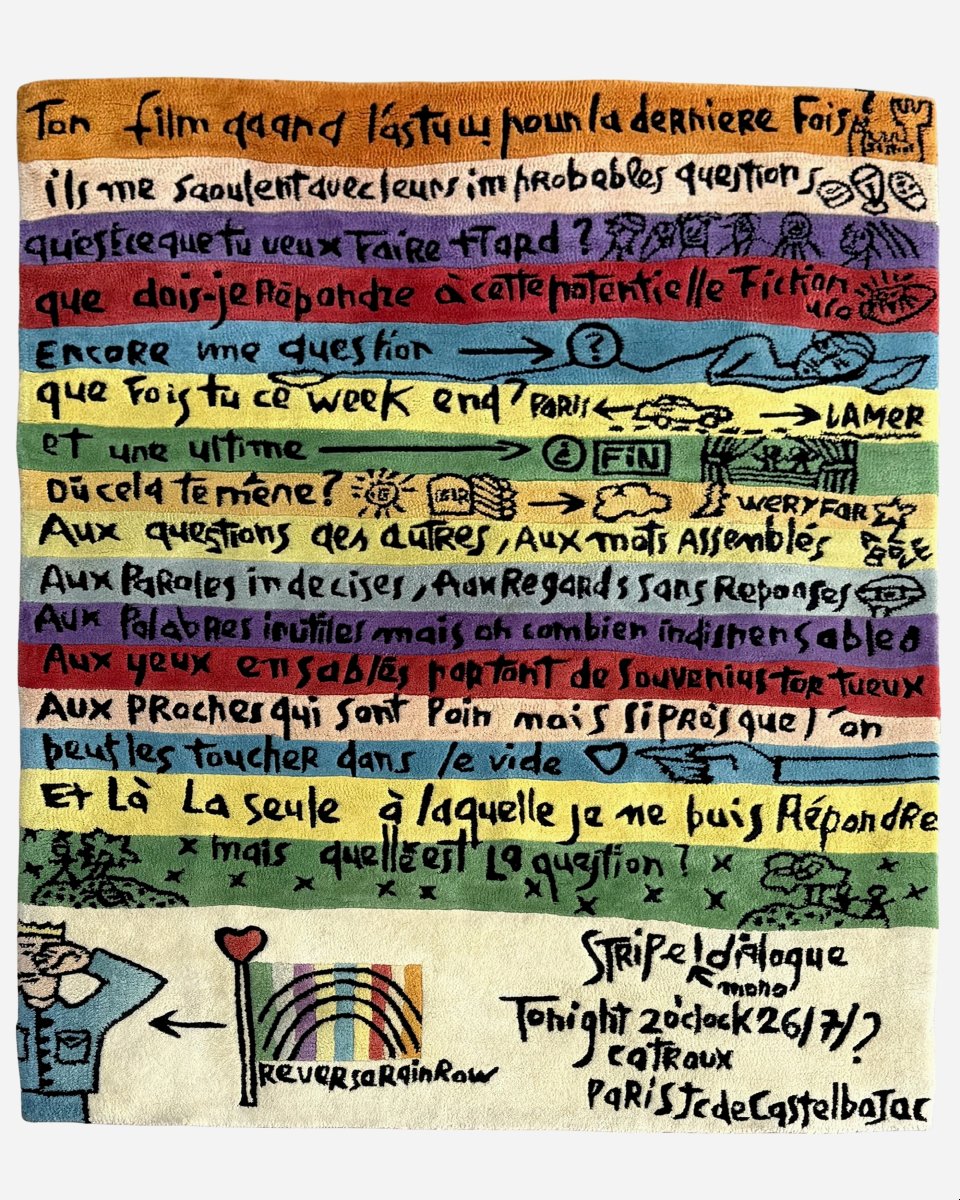 Ton film quand l'astu vu pour la derniere Fois
ils me saoulent avec leurs improbables questions
qu'est ce que tu veux Faire +TARD ?
que dois-je Répondre à cette potentielle Fiction
EncoRe une question → ?
que Fais tu ce week end? PARIS ← → LAMER
et une ultime → ¿ FIN
Où cela te mêne? → WERYFAR
Aux questions des autres, Aux mots Assemblés
Aux PaRoles indecises, Aux Regards sans Reponses
Aux Palabres inutiles mais oh combien indispensables
Aux yeux ensablés portant de souvenirs tortueux
Aux PRoches qui sont loin mais si près que l'on
peut les toucheR dans le vide
Et Là La seule à laquelle je ne puis Répondre
mais quelle est La question ?
STRipe! dialogue
mono
Tonight 20'clock 26/7/?
reverse RainRow
catroux
PaRiS JcdeCastelbaJac